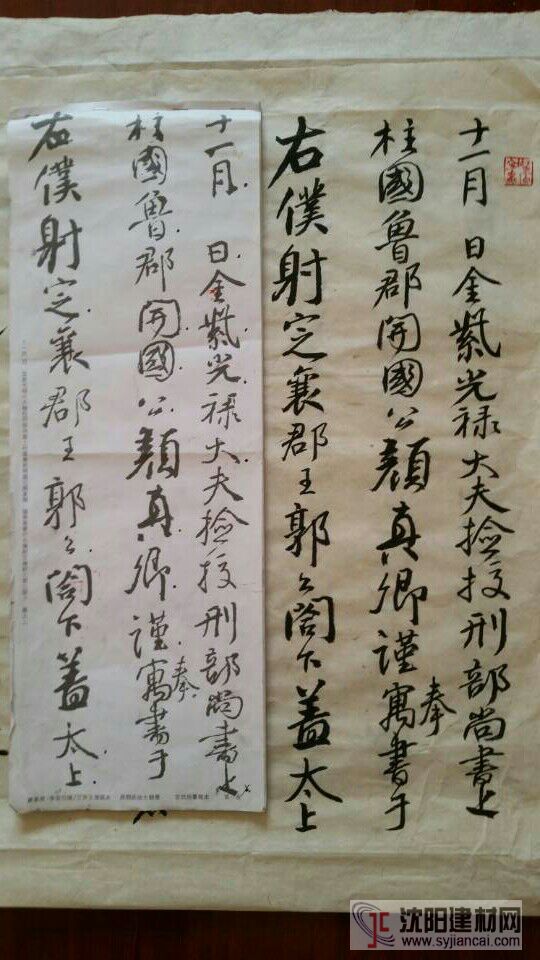 十一月 日金紫光禄大夫捡挍刑部尚書上
柱國魯郡開國公顏真卿謹寓書于
奉
右僕射定襄郡王郭公閤下蓋太上
十一月 日金紫光禄大夫捡挍刑部尚書上
柱國魯郡開國公顏真卿謹寓書于
奉
右僕射定襄郡王郭公閤下蓋太上
沈阳建材网
www.syjiancai.com